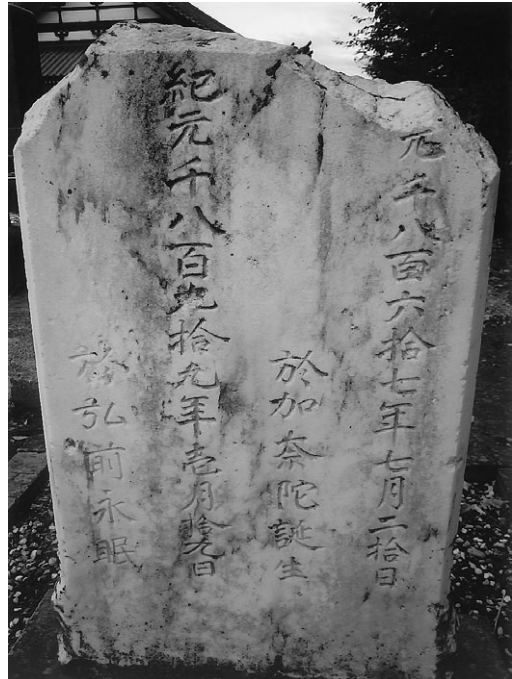 元千八百六拾七年七月二拾日
於加奈陀誕生
紀元千八百九拾九年壱月拾九日
於弘前永眠